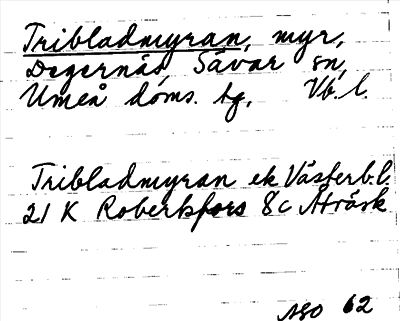 Tribladmyran, myr,
Degernäs, Sävar sn,
Umeå doms. tg, Vb. l.
Tribladmyran ek Västerb.l.
21 K Robertsfors 8c Åträsk
ASO 62